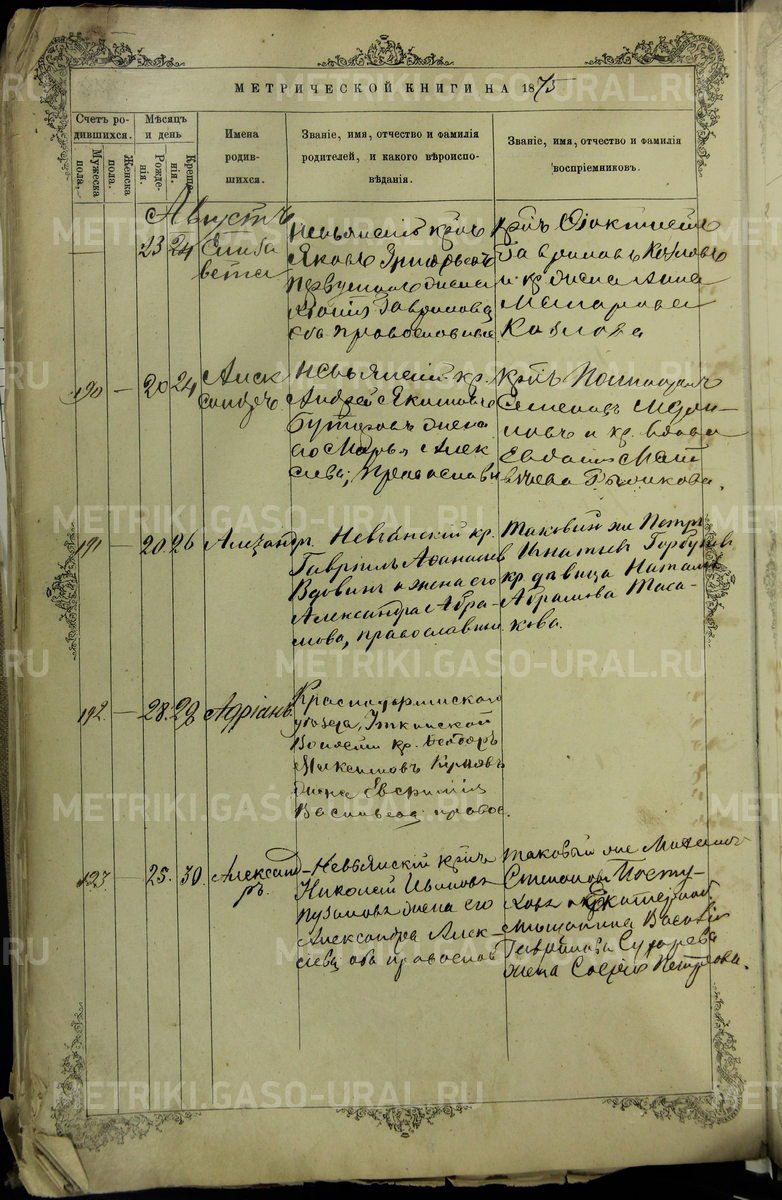 МЕТРИЧЕСКОЙ КНИГИ НА 1875
Счетъ ро-
дившихся.
Мужеска
пола.
Женска
пола.
Мѣсяцъ
и день
Рожде-
нія.
Креще-
нія.
Имена
родив-
шихся.
Званіе, имя, отчество и фамилія
родителей, и какого вѣроиспо-
вѣданія.
Званіе, имя, отчество и фамилія
воспріемниковъ.
Августъ
— 23 24 Елиза
вета
Невьянскій крнъ
Яковъ Григорьевъ
жена
Гавриловa
оба православные
крнъ
Гавриловъ Козловъ
и кр. жена Анна
Макарова
Козлова
190 — 20 24 Алек
сандръ
Невьянскій кр.
Андрей Екимовъ
Бутаковъ жена
его Марья Алек
сѣева, православн
крнъ
Семеновъ
ловъ и кр. вдова
Евдокія Мат
вѣева
191 — 20 26 Александръ
Невьянскій кр.
Гавріилъ Афанасьев
Вдовинъ и жена его
Александра Абра-
мова, православныи
Таковый же Петръ
Игнатьевъ Горбуновъ
кр дѣвица Наталья
Абрамова Таса-
кова.
192 — 28 29 Адріанъ
Красноуфимскаго
уѣзда, Уткинской
кр. Ѳеодоръ
Максимовъ
жена Евфимія
Васильева правос.
193 — 25. 30. Александ
ръ.
Невьянскій крнъ
Николай Ивановъ
Пузановъ жена его
Александра Алек-
сѣева оба правослов
таковый же Михаилъ
Степановъ Посту-
ховъ и
мѣщанина Василія
Гаврилова Сугорева
жена Софія Петрова.
METRIKI.GASO-URAL.RU